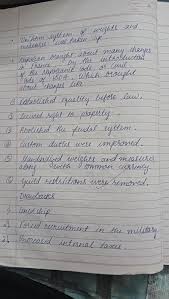 . Uniform system of weights and
measures was taken up.
. Napoleon brought about many changes
in France by the introduction
of the Napoleonic code or civil
code of 1804. Which brought
about changes like
① Established equality before law.
② Secured right to property.
③ Abolished the feudal system.
④ Custom duties were improved.
⑤ Standardized weights and measures
along with common currency.
⑥ Guild restrictions were removed.
Drawbacks
1. Censorship
2. Forced recruitment in the military
3. Increased internal taxes